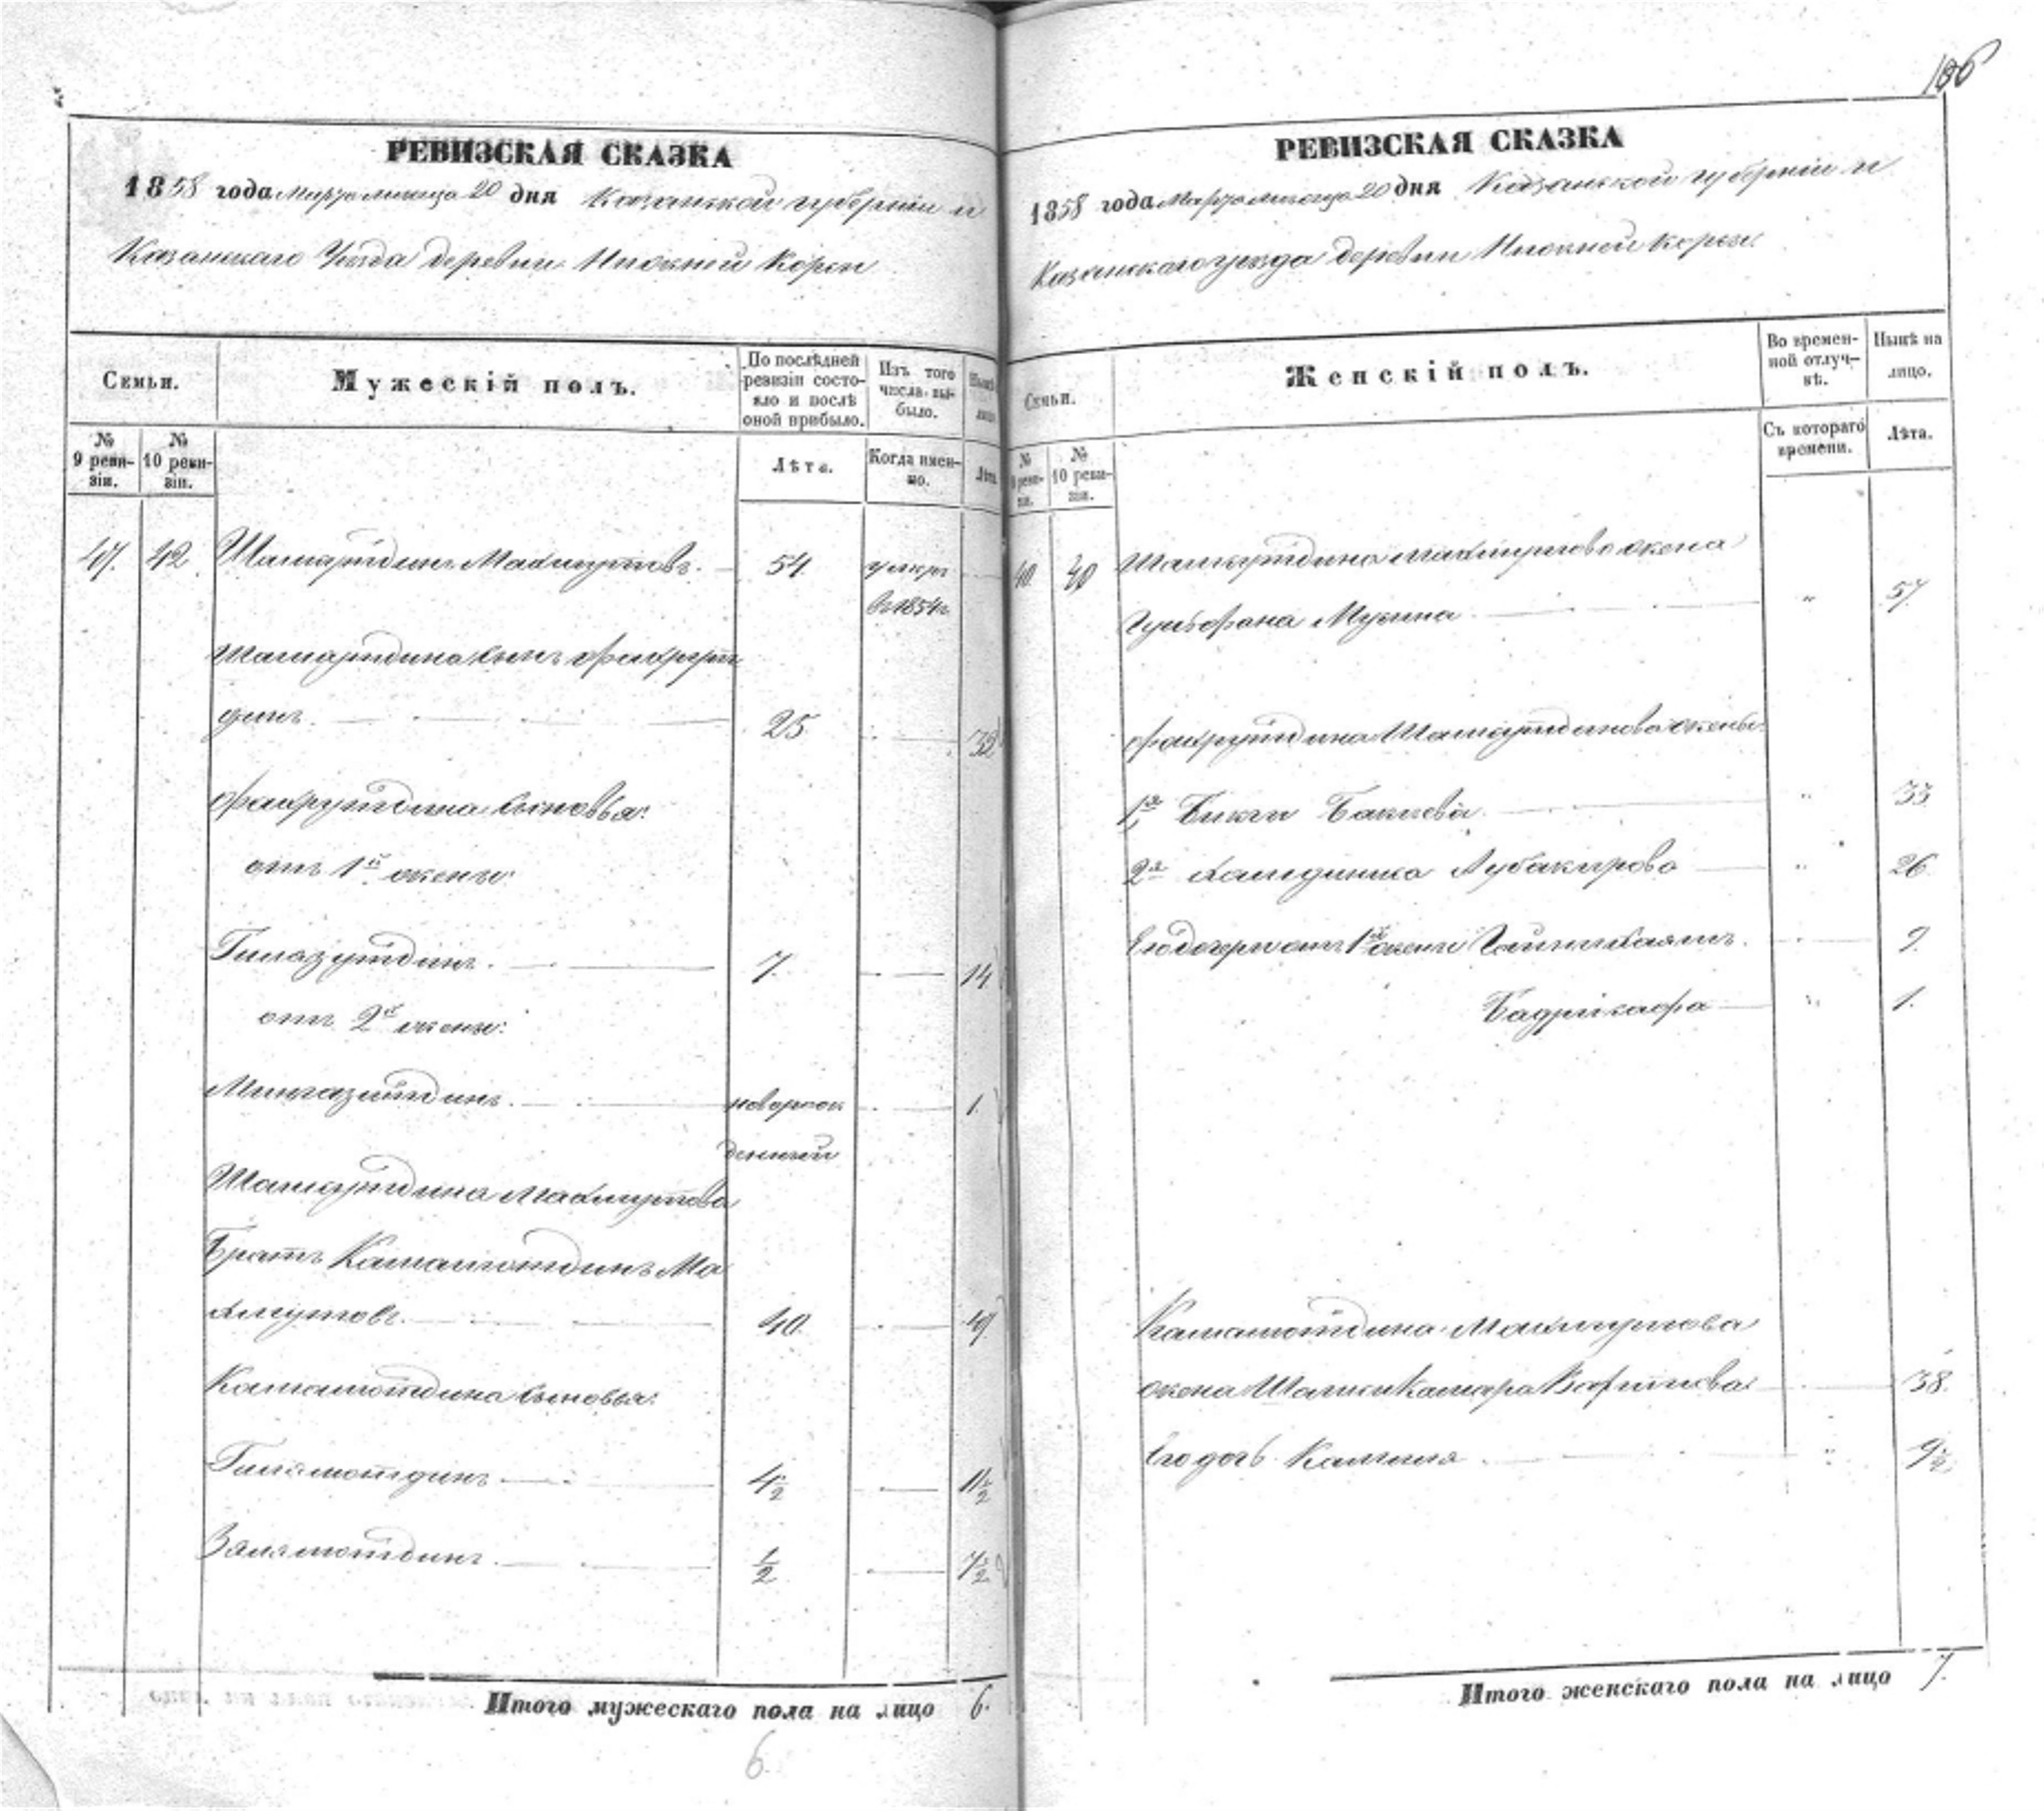 186
РЕВИЗСКАЯ СКАЗКА
1858 года Марта месяца 20 дня Казанской губернии и
Казанскаго Уезда деревни Нижней Корсы
Семьи.
Мужескій полъ.
По послѣдней ревизіи состояло и послѣ оной прибыло.
Изъ того числа выбыло.
Нынѣ на лицо
№ 9 ревизіи.
№ 10 ревизіи.
Лѣта.
Когда именно.
Лѣта
47. 42. Шамсутдинъ Махмутовъ. 54. умеръ
въ 1854 г.
Шамсутдина сынъ Фахрут
динъ. 25 32
Фахрутдина сыновья:
отъ 1й жены:
Гилазутдинъ. 7. 14
отъ 2й жены:
Мингазитдинъ. новорож 1.
денный
Шамсутдина Махмутова
братъ Камалютдинъ Ма
хмутовъ. 40. 47
Камалютдина сыновья:
Гилямютдинъ 4 1/2 11 1/2
Залялютдинъ. 1/2 7 1/2
Итого мужескаго пола на лицо 6.
6.
РЕВИЗСКАЯ СКАЗКА
1858 года Марта месяца 20 дня Казанской губернии и
Казанскаго уезда деревни Нижней Корсы.
Семьи.
Женскій полъ.
Во временной отлучкѣ.
Нынѣ на лицо.
№ 9 ревизіи.
№ 10 ревизіи.
Съ котораго времени.
Лѣта.
40. 40 Шамсутдина Махмутова жена
Мусина " 57.
Фахрутдина Шамсутдинова жены:
1я Бикя Бакиева. " 33
2я Абубакирова " 26
Его дочери отъ 1й жены 9.
Бадрикафа " 1.
Камалютдина Махмутова
жена Шамсикамара 38.
Его дочь 9 1/2
Итого женскаго пола на лицо 7.